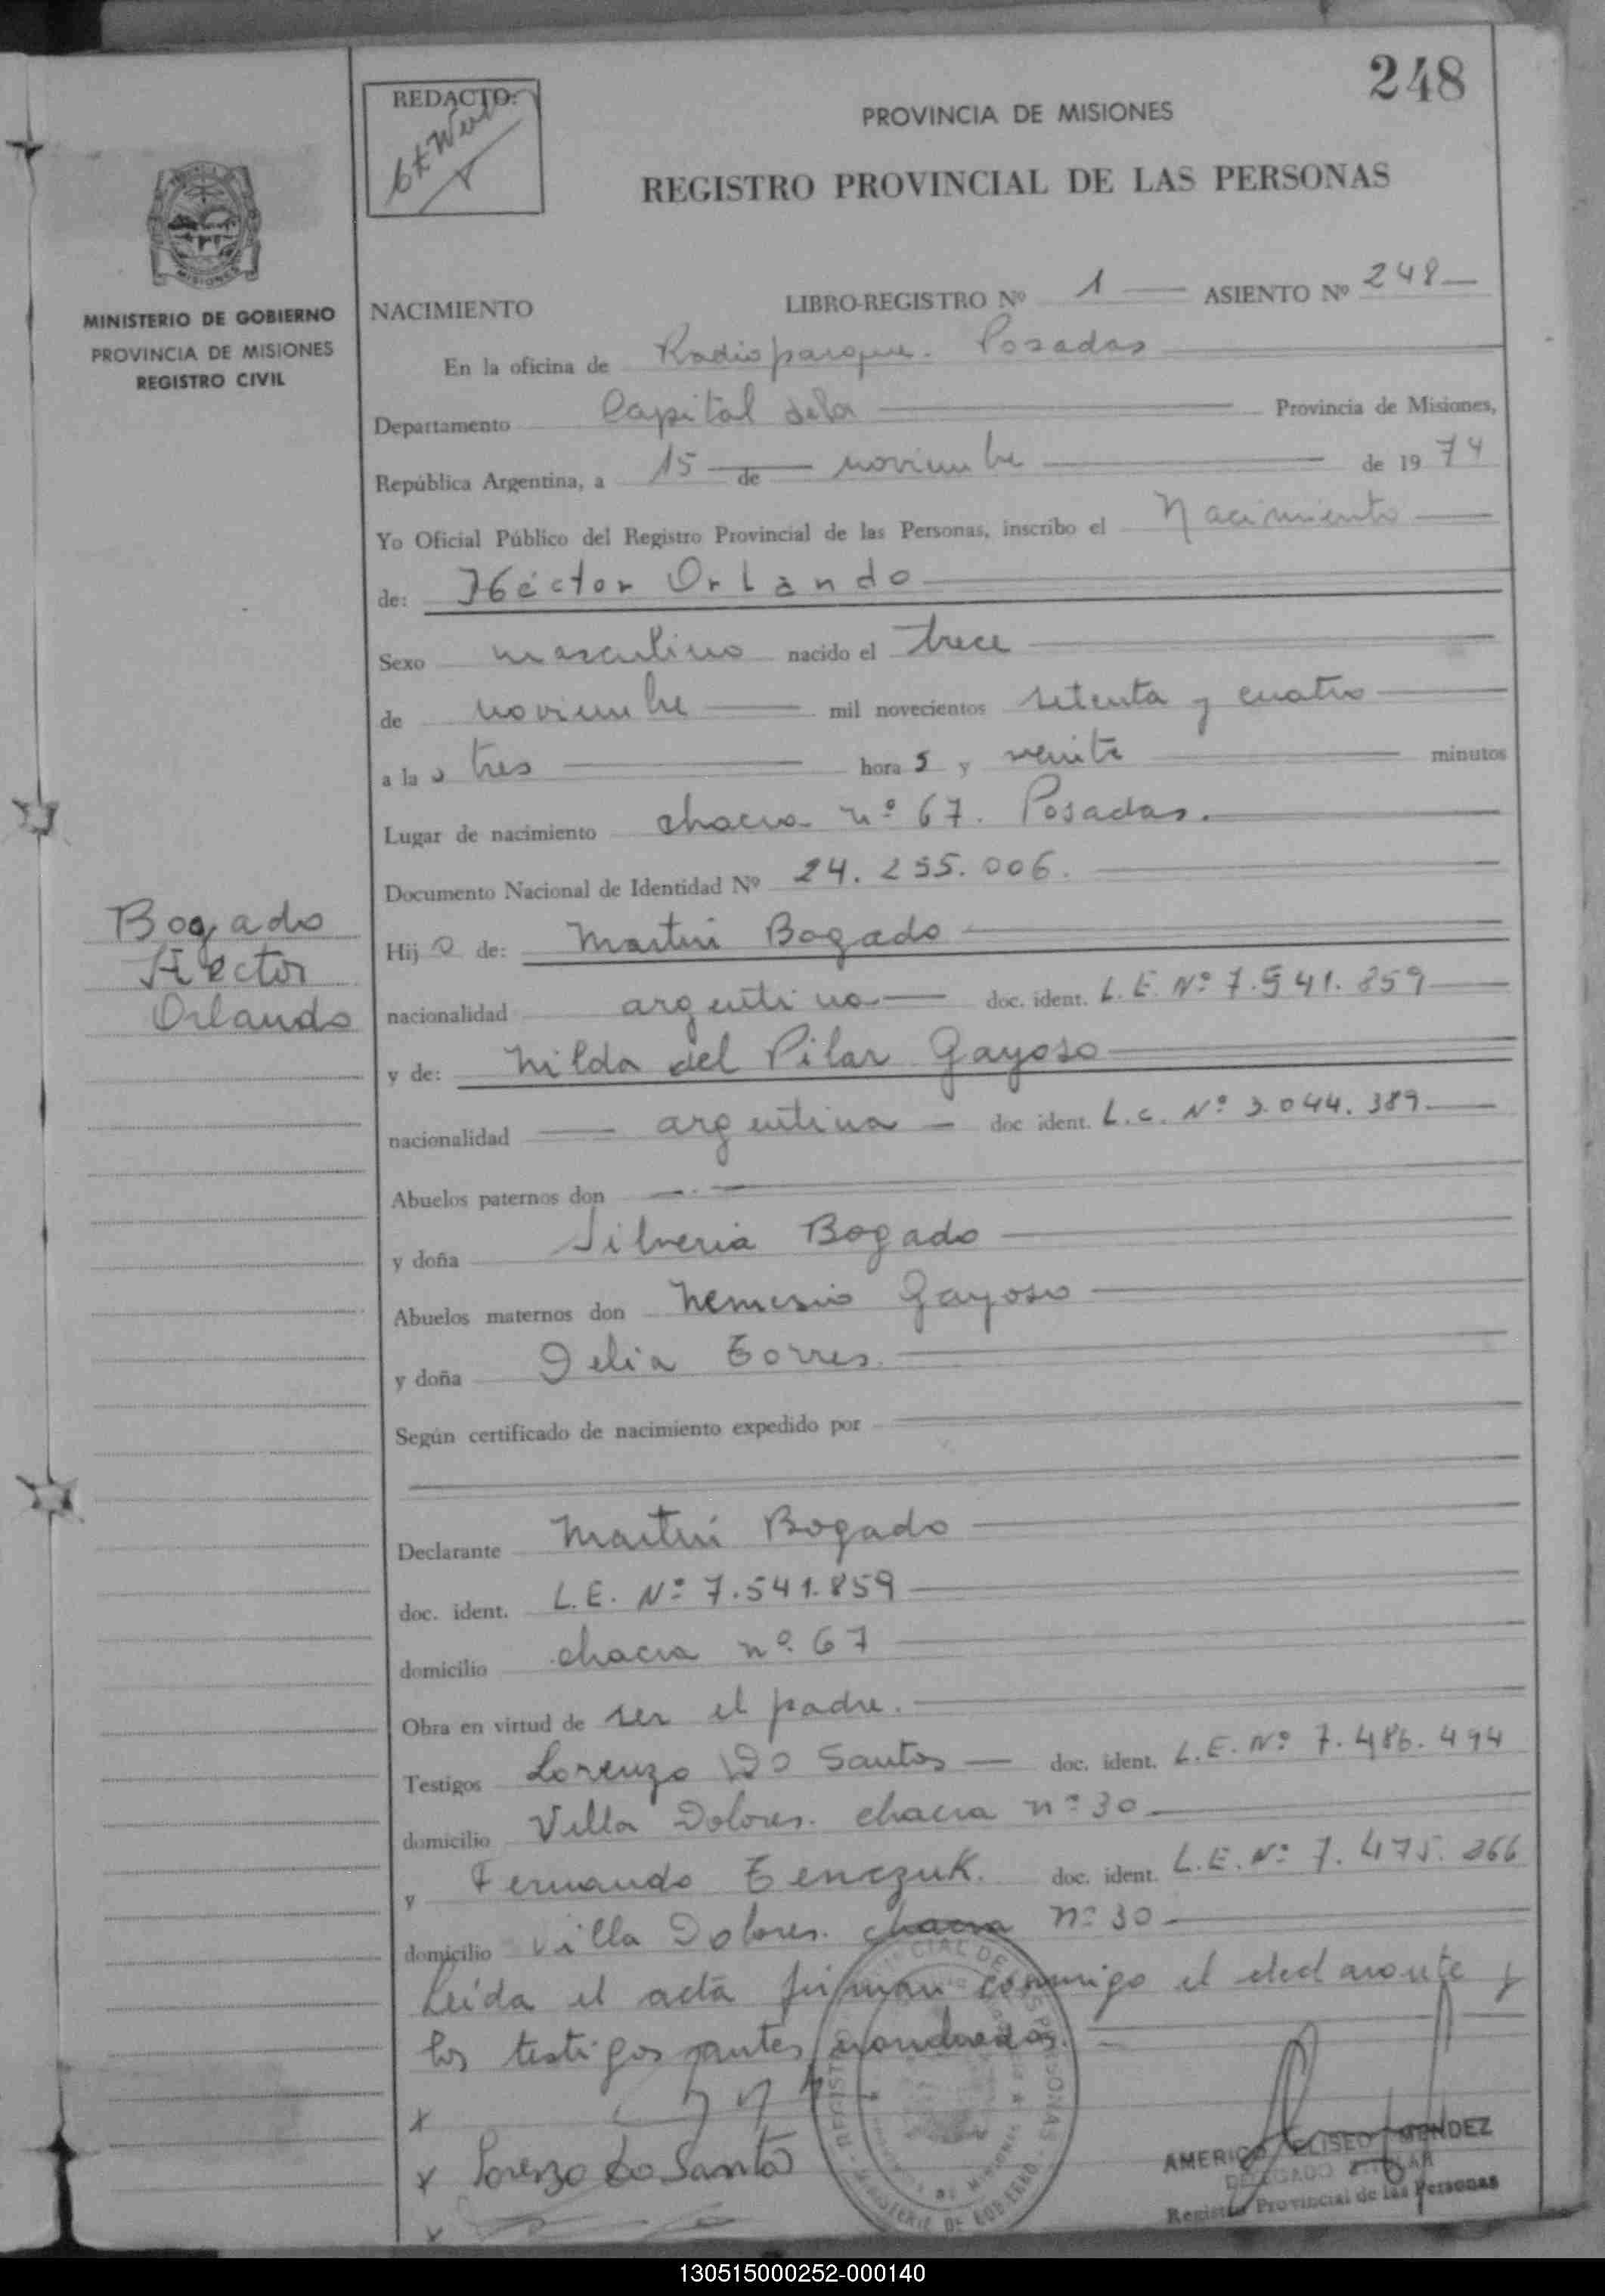 248
REDACTO:
PROVINCIA DE MISIONES
REGISTRO PROVINCIAL DE LAS PERSONAS
MISIONES
MINISTERIO DE GOBIERNO
PROVINCIA DE MISIONES
REGISTRO CIVIL
NACIMIENTO LIBRO-REGISTRO Nº 1 ASIENTO Nº 248
En la oficina de Radioparque. Posadas
Departamento Capital de la Provincia de Misiones,
República Argentina, a 15 de noviembre de 1974
Yo Oficial Público del Registro Provincial de las Personas, inscribo el Nacimiento
de: Héctor Orlando
Sexo masculino nacido el trece
de noviembre mil novecientos setenta y cuatro
a las tres horas y veinte minutos
Lugar de nacimiento chacra nº 67. Posadas.
Documento Nacional de Identidad Nº 24.255.006.
Bogado
Héctor
Orlando
Hijo de: Martín Bogado
nacionalidad argentina doc. ident. L.E. Nº 7.541.859
y de: Nilda del Pilar Gayoso
nacionalidad argentina doc ident. L.C. Nº 3.044.389
Abuelos paternos don
y doña Silveria Bogado
Abuelos maternos don Nemesio Gayoso
y doña Delia Torres.
Según certificado de nacimiento expedido por
Declarante Martín Bogado
doc. ident. L.E. Nº 7.541.859
domicilio chacra nº 67
Obra en virtud de ser el padre.
Testigos Lorenzo Do Santos doc. ident. L.E. Nº 7.486.494
domicilio Villa Dolores. chacra nº 30
y Fernando Tenczuk. doc. ident. L.E. Nº 7.475.866
domicilio Villa Dolores. chacra nº 30
Leída el acta firman conmigo el declarante y
los testigos antes nombrados.
x
x Lorenzo do Santo
x
AMERICO ELISEO MENDEZ
DELEGADO TITULAR
Registro Provincial de las Personas
130515000252-000140